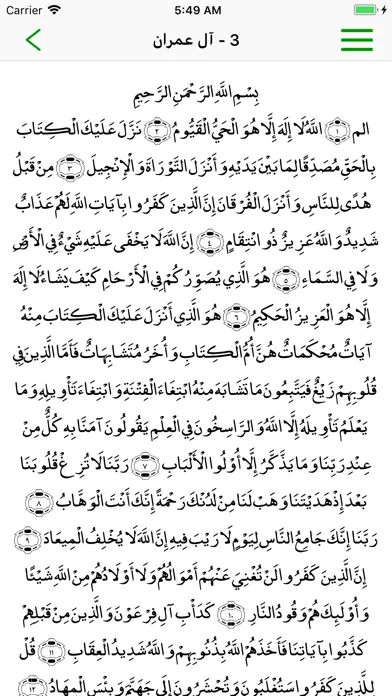 Carrier 5:49 AM
3 - آل عمران
بِسْمِ اللَّهِ الرَّحْمَنِ الرَّحِيمِ
الم ١ اللَّهُ لَا إِلَهَ إِلَّا هُوَ الْحَيُّ الْقَيُّومُ ٢ نَزَّلَ عَلَيْكَ الْكِتَابَ
بِالْحَقِّ مُصَدِّقًا لِمَا بَيْنَ يَدَيْهِ وَأَنْزَلَ التَّوْرَاةَ وَالْإِنْجِيلَ ٣ مِنْ قَبْلُ
هُدًى لِلنَّاسِ وَأَنْزَلَ الْفُرْقَانَ إِنَّ الَّذِينَ كَفَرُوا بِآيَاتِ اللَّهِ لَهُمْ عَذَابٌ
شَدِيدٌ وَاللَّهُ عَزِيزٌ ذُو انْتِقَامٍ ٤ إِنَّ اللَّهَ لَا يَخْفَى عَلَيْهِ شَيْءٌ فِي الْأَرْضِ
وَلَا فِي السَّمَاءِ ٥ هُوَ الَّذِي يُصَوِّرُكُمْ فِي الْأَرْحَامِ كَيْفَ يَشَاءُ لَا إِلَهَ
إِلَّا هُوَ الْعَزِيزُ الْحَكِيمُ ٦ هُوَ الَّذِي أَنْزَلَ عَلَيْكَ الْكِتَابَ مِنْهُ
آيَاتٌ مُحْكَمَاتٌ هُنَّ أُمُّ الْكِتَابِ وَأُخَرُ مُتَشَابِهَاتٌ فَأَمَّا الَّذِينَ فِي
قُلُوبِهِمْ زَيْغٌ فَيَتَّبِعُونَ مَا تَشَابَهَ مِنْهُ ابْتِغَاءَ الْفِتْنَةِ وَابْتِغَاءَ تَأْوِيلِهِ وَمَا
يَعْلَمُ تَأْوِيلَهُ إِلَّا اللَّهُ وَالرَّاسِخُونَ فِي الْعِلْمِ يَقُولُونَ آمَنَّا بِهِ كُلٌّ مِنْ
عِنْدِ رَبِّنَا وَمَا يَذَّكَّرُ إِلَّا أُولُوا الْأَلْبَابِ ٧ رَبَّنَا لَا تُزِغْ قُلُوبَنَا
بَعْدَ إِذْ هَدَيْتَنَا وَهَبْ لَنَا مِنْ لَدُنْكَ رَحْمَةً إِنَّكَ أَنْتَ الْوَهَّابُ ٨
رَبَّنَا إِنَّكَ جَامِعُ النَّاسِ لِيَوْمٍ لَا رَيْبَ فِيهِ إِنَّ اللَّهَ لَا يُخْلِفُ الْمِيعَادَ ٩
إِنَّ الَّذِينَ كَفَرُوا لَنْ تُغْنِيَ عَنْهُمْ أَمْوَالُهُمْ وَلَا أَوْلَادُهُمْ مِنَ اللَّهِ شَيْئًا
وَأُولَئِكَ هُمْ وَقُودُ النَّارِ ١٠ كَدَأْبِ آلِ فِرْعَوْنَ وَالَّذِينَ مِنْ قَبْلِهِمْ
كَذَّبُوا بِآيَاتِنَا فَأَخَذَهُمُ اللَّهُ بِذُنُوبِهِمْ وَاللَّهُ شَدِيدُ الْعِقَابِ ١١ قُلْ
لِلَّذِينَ كَفَرُوا سَتُغْلَبُونَ وَتُحْشَرُونَ إِلَى جَهَنَّمَ وَبِئْسَ الْمِهَادُ ١٢